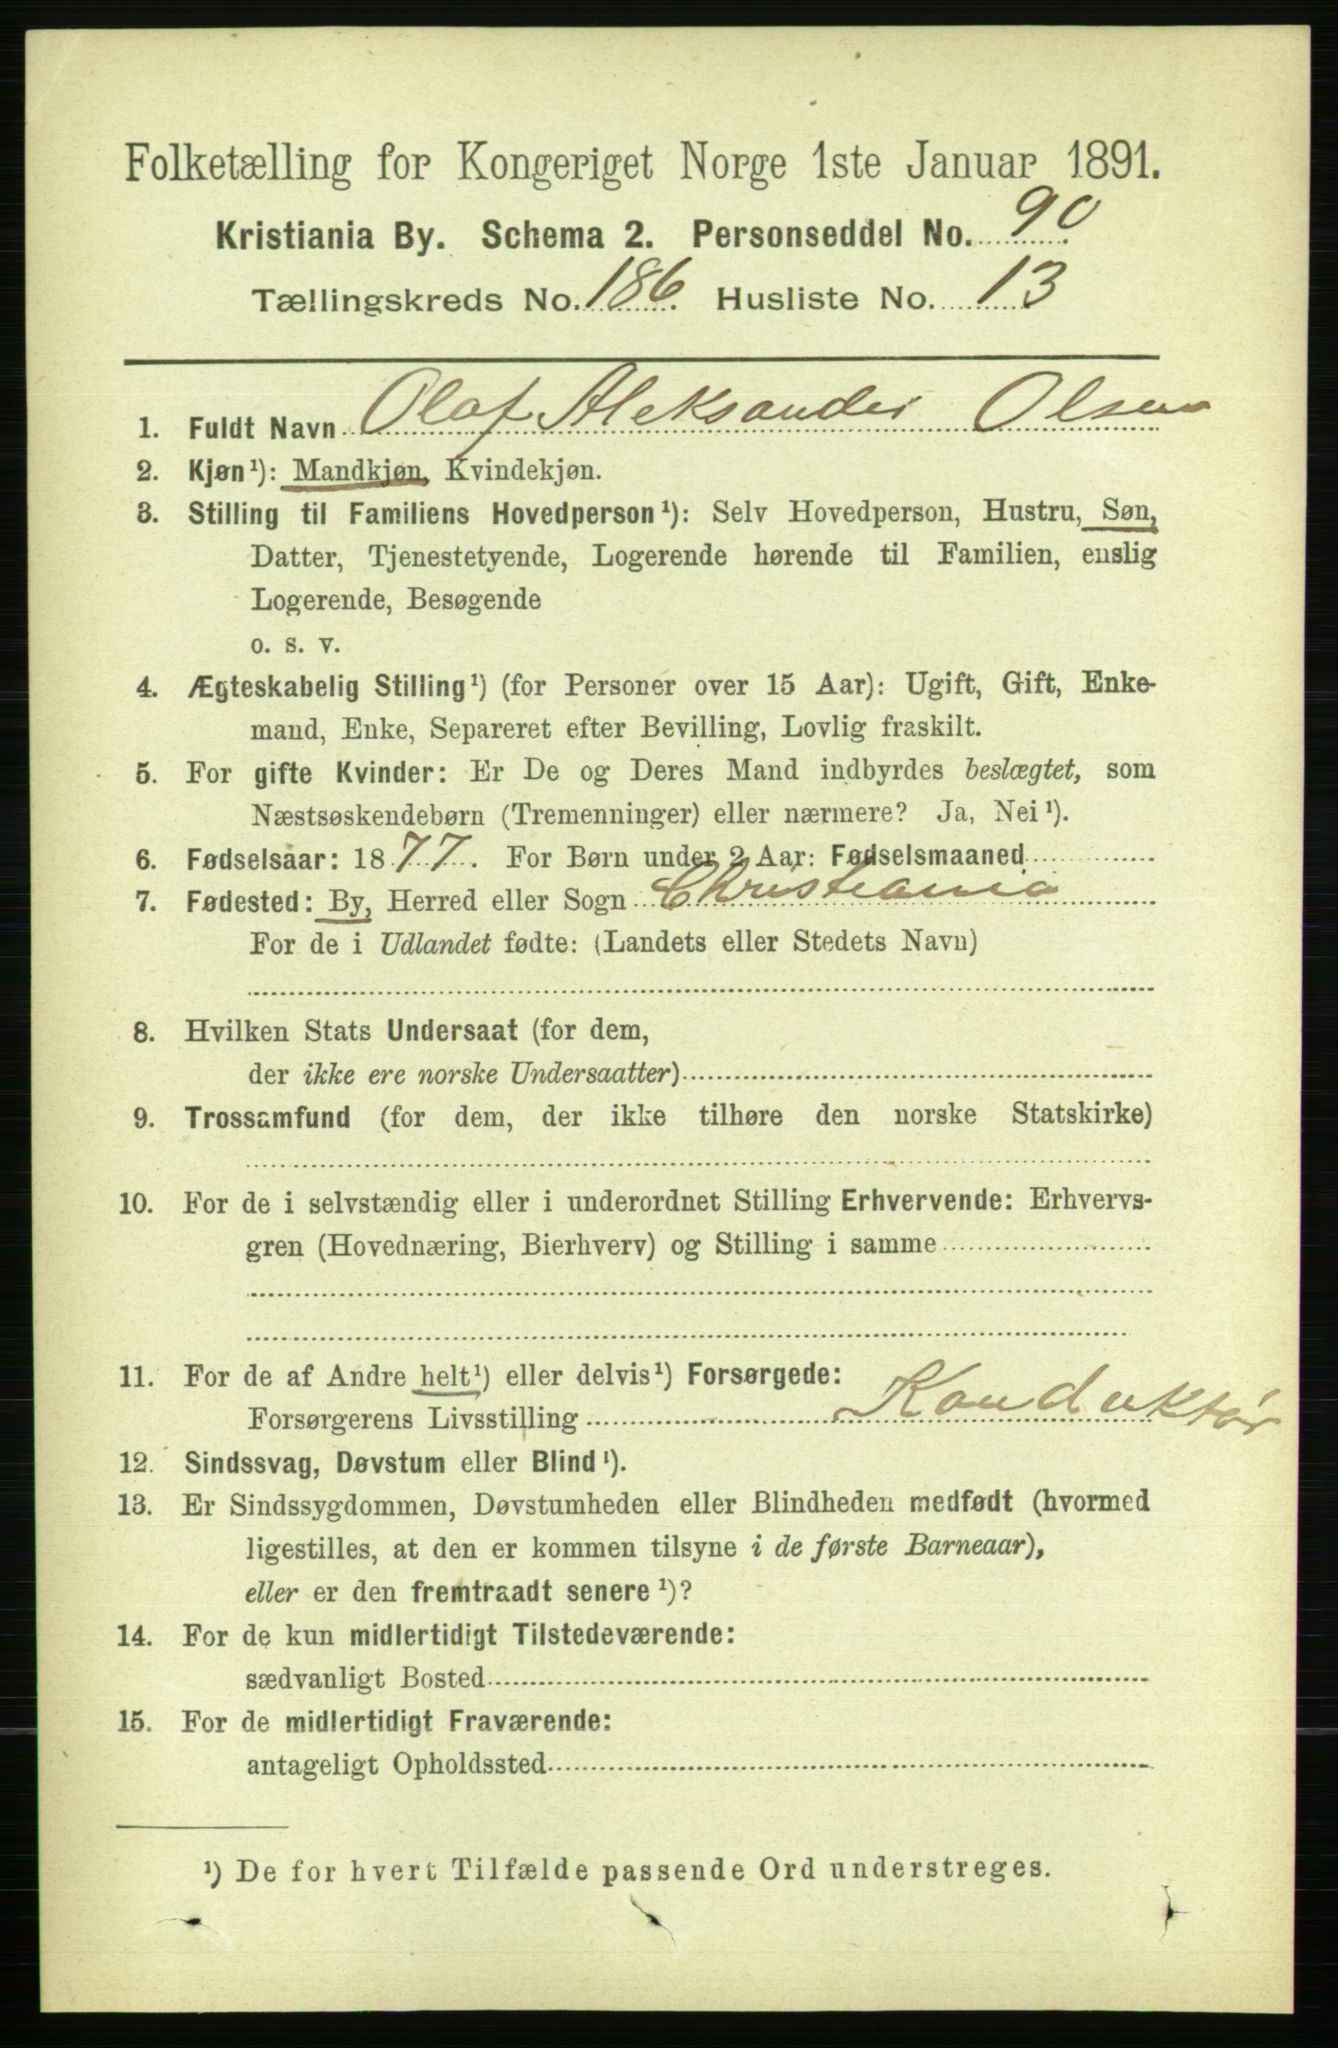 Folketælling for Kongeriget Norge 1ste Januar 1891.
Kristiania By. Schema 2. Personseddel No. 90
Tællingskreds No. 186. Husliste No. 13
1. Fuldt Navn Olaf Aleksander Olsen
2. Kjøn¹): Mandkjøn, Kvindekjøn.
3. Stilling til Familiens Hovedperson¹): Selv Hovedperson, Hustru, Søn,
Datter, Tjenestetyende, Logerende hørende til Familien, enslig
Logerende, Besøgende
o. s. v.
4. Ægteskabelig Stilling¹) (for Personer over 15 Aar): Ugift, Gift, Enke-
mand, Enke, Separeret efter Bevilling, Lovlig fraskilt.
5. For gifte Kvinder: Er De og Deres Mand indbyrdes beslægtet, som
Næstsøskendebørn (Tremenninger) eller nærmere? Ja, Nei¹).
6. Fødselsaar: 1877. For Børn under 2 Aar: Fødselsmaaned
7. Fødested: By, Herred eller Sogn Christiania
For de i Udlandet fødte: (Landets eller Stedets Navn)
8. Hvilken Stats Undersaat (for dem,
der ikke ere norske Undersaatter)
9. Trossamfund (for dem, der ikke tilhøre den norske Statskirke)
10. For de i selvstændig eller i underordnet Stilling Erhvervende: Erhvervs-
gren (Hovednæring, Bierhverv) og Stilling i samme
11. For de af Andre helt¹) eller delvis¹) Forsørgede:
Forsørgerens Livsstilling Konduktør
12. Sindssvag, Døvstum eller Blind¹).
13. Er Sindssygdommen, Døvstumheden eller Blindheden medfødt (hvormed
ligestilles, at den er kommen tilsyne i de første Barneaar),
eller er den fremtraadt senere¹)?
14. For de kun midlertidigt Tilstedeværende:
sædvanligt Bosted
15. For de midlertidigt Fraværende:
antageligt Opholdssted
¹) De for hvert Tilfælde passende Ord understreges.